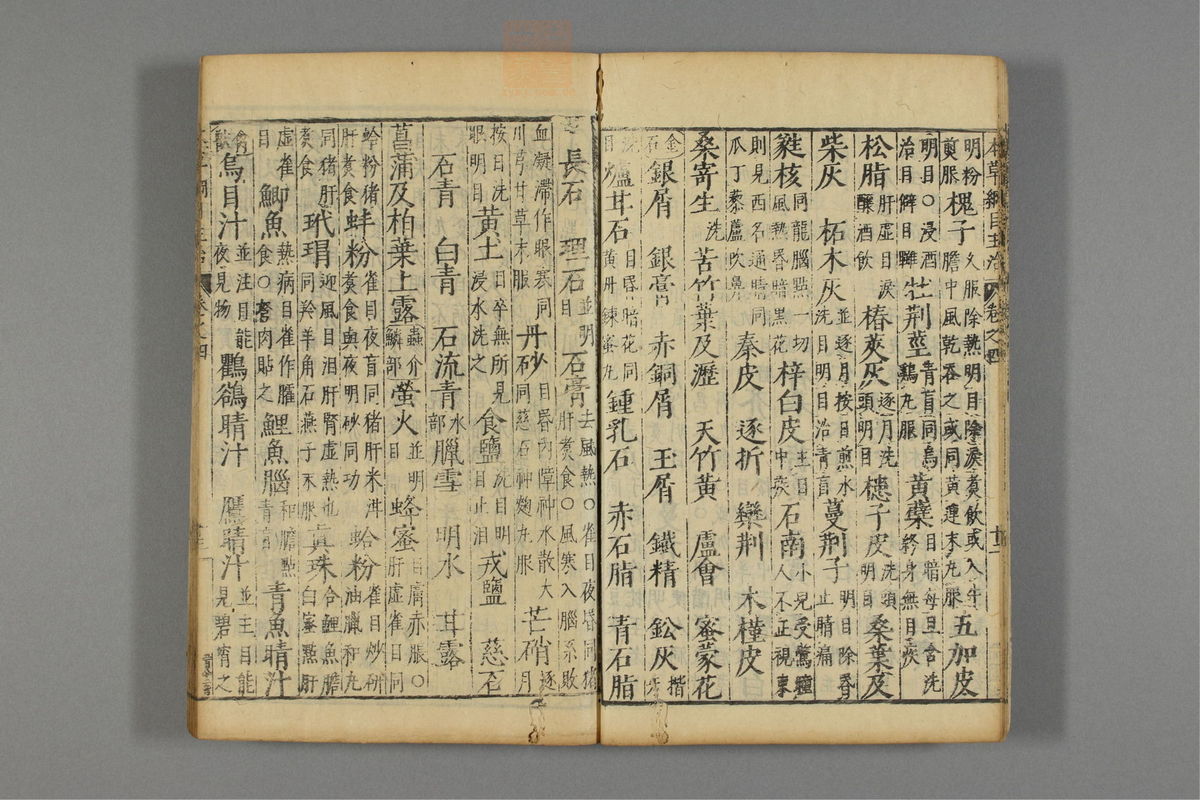 本草綱目主治 卷之四
明粉 煎脹 槐子 久服除熱明目除淚煮飲或入牛膽中風乾吞之或同黃連末丸服 五加皮
明目○浸酒治目僻目䀮 牡荊莖 青盲同烏鷄丸服 黃蘗 目暗每旦含洗終身無目疾
松脂 肝虛目淚釀酒飲 椿莢灰 逐月洗頭明目 槵子皮 洗頭明目 桑葉及
柴灰 柘木灰 並逐月按日煎水洗目明目治青盲 蔓荊子 明目除昏止睛痛
蕤核 同龍腦點一切風熱昏暗黑花 梓白皮 主目中疾 石南 小兒受驚瞳人不正視東
則見西名通睛同瓜丁藜蘆吹鼻 秦皮 逐折 欒荊 木槿皮
桑寄生 洗 苦竹葉及瀝 天竹黃○ 盧會 蜜蒙花
金石 銀屑 銀膏 赤銅屑 玉屑 鐵精 鉛灰 揩牙
洗目 爐甘石 目昏暗花同黃丹鍊蜜丸 鍾乳石 赤石脂 青石脂
長石 理石 並明目 石膏 去風熱○雀目夜昏同猪肝煮食○風寒入腦系敗
血凝滯作眼寒同川芎甘草末服 丹砂 目昏內障神水散大丹石同慈石神麴丸服 芒硝 逐月
按日洗眼明目 黃土 目卒無所見浸水洗之 食鹽 洗目明目止泪 戎鹽 慈石
石青 白青 石流青 水部 臘雪 明水 甘露
菖蒲及柏葉上露 蟲介鱗部 螢火 並明目 蜂蜜 目膚赤脹○肝虛雀目同
蛤粉猪肝煮食 蚌粉 雀目夜盲同猪肝米泔煮食與夜明砂同功 蛤粉 雀目炒研油臘和丸
同猪肝煮食 玳瑁 迎風目泪肝腎虛熱也同羚羊角石燕子末服 真珠 合鯉魚膽白蜜點肝
虛雀目 鯽魚 熱病目暗作臛食○𩺬肉貼之 鯉魚腦 和膽點青盲 青魚睛汁
並注目能夜見物 禽獸 烏目汁 鸜鵒睛汁 鷹睛汁 並主目能見碧霄之